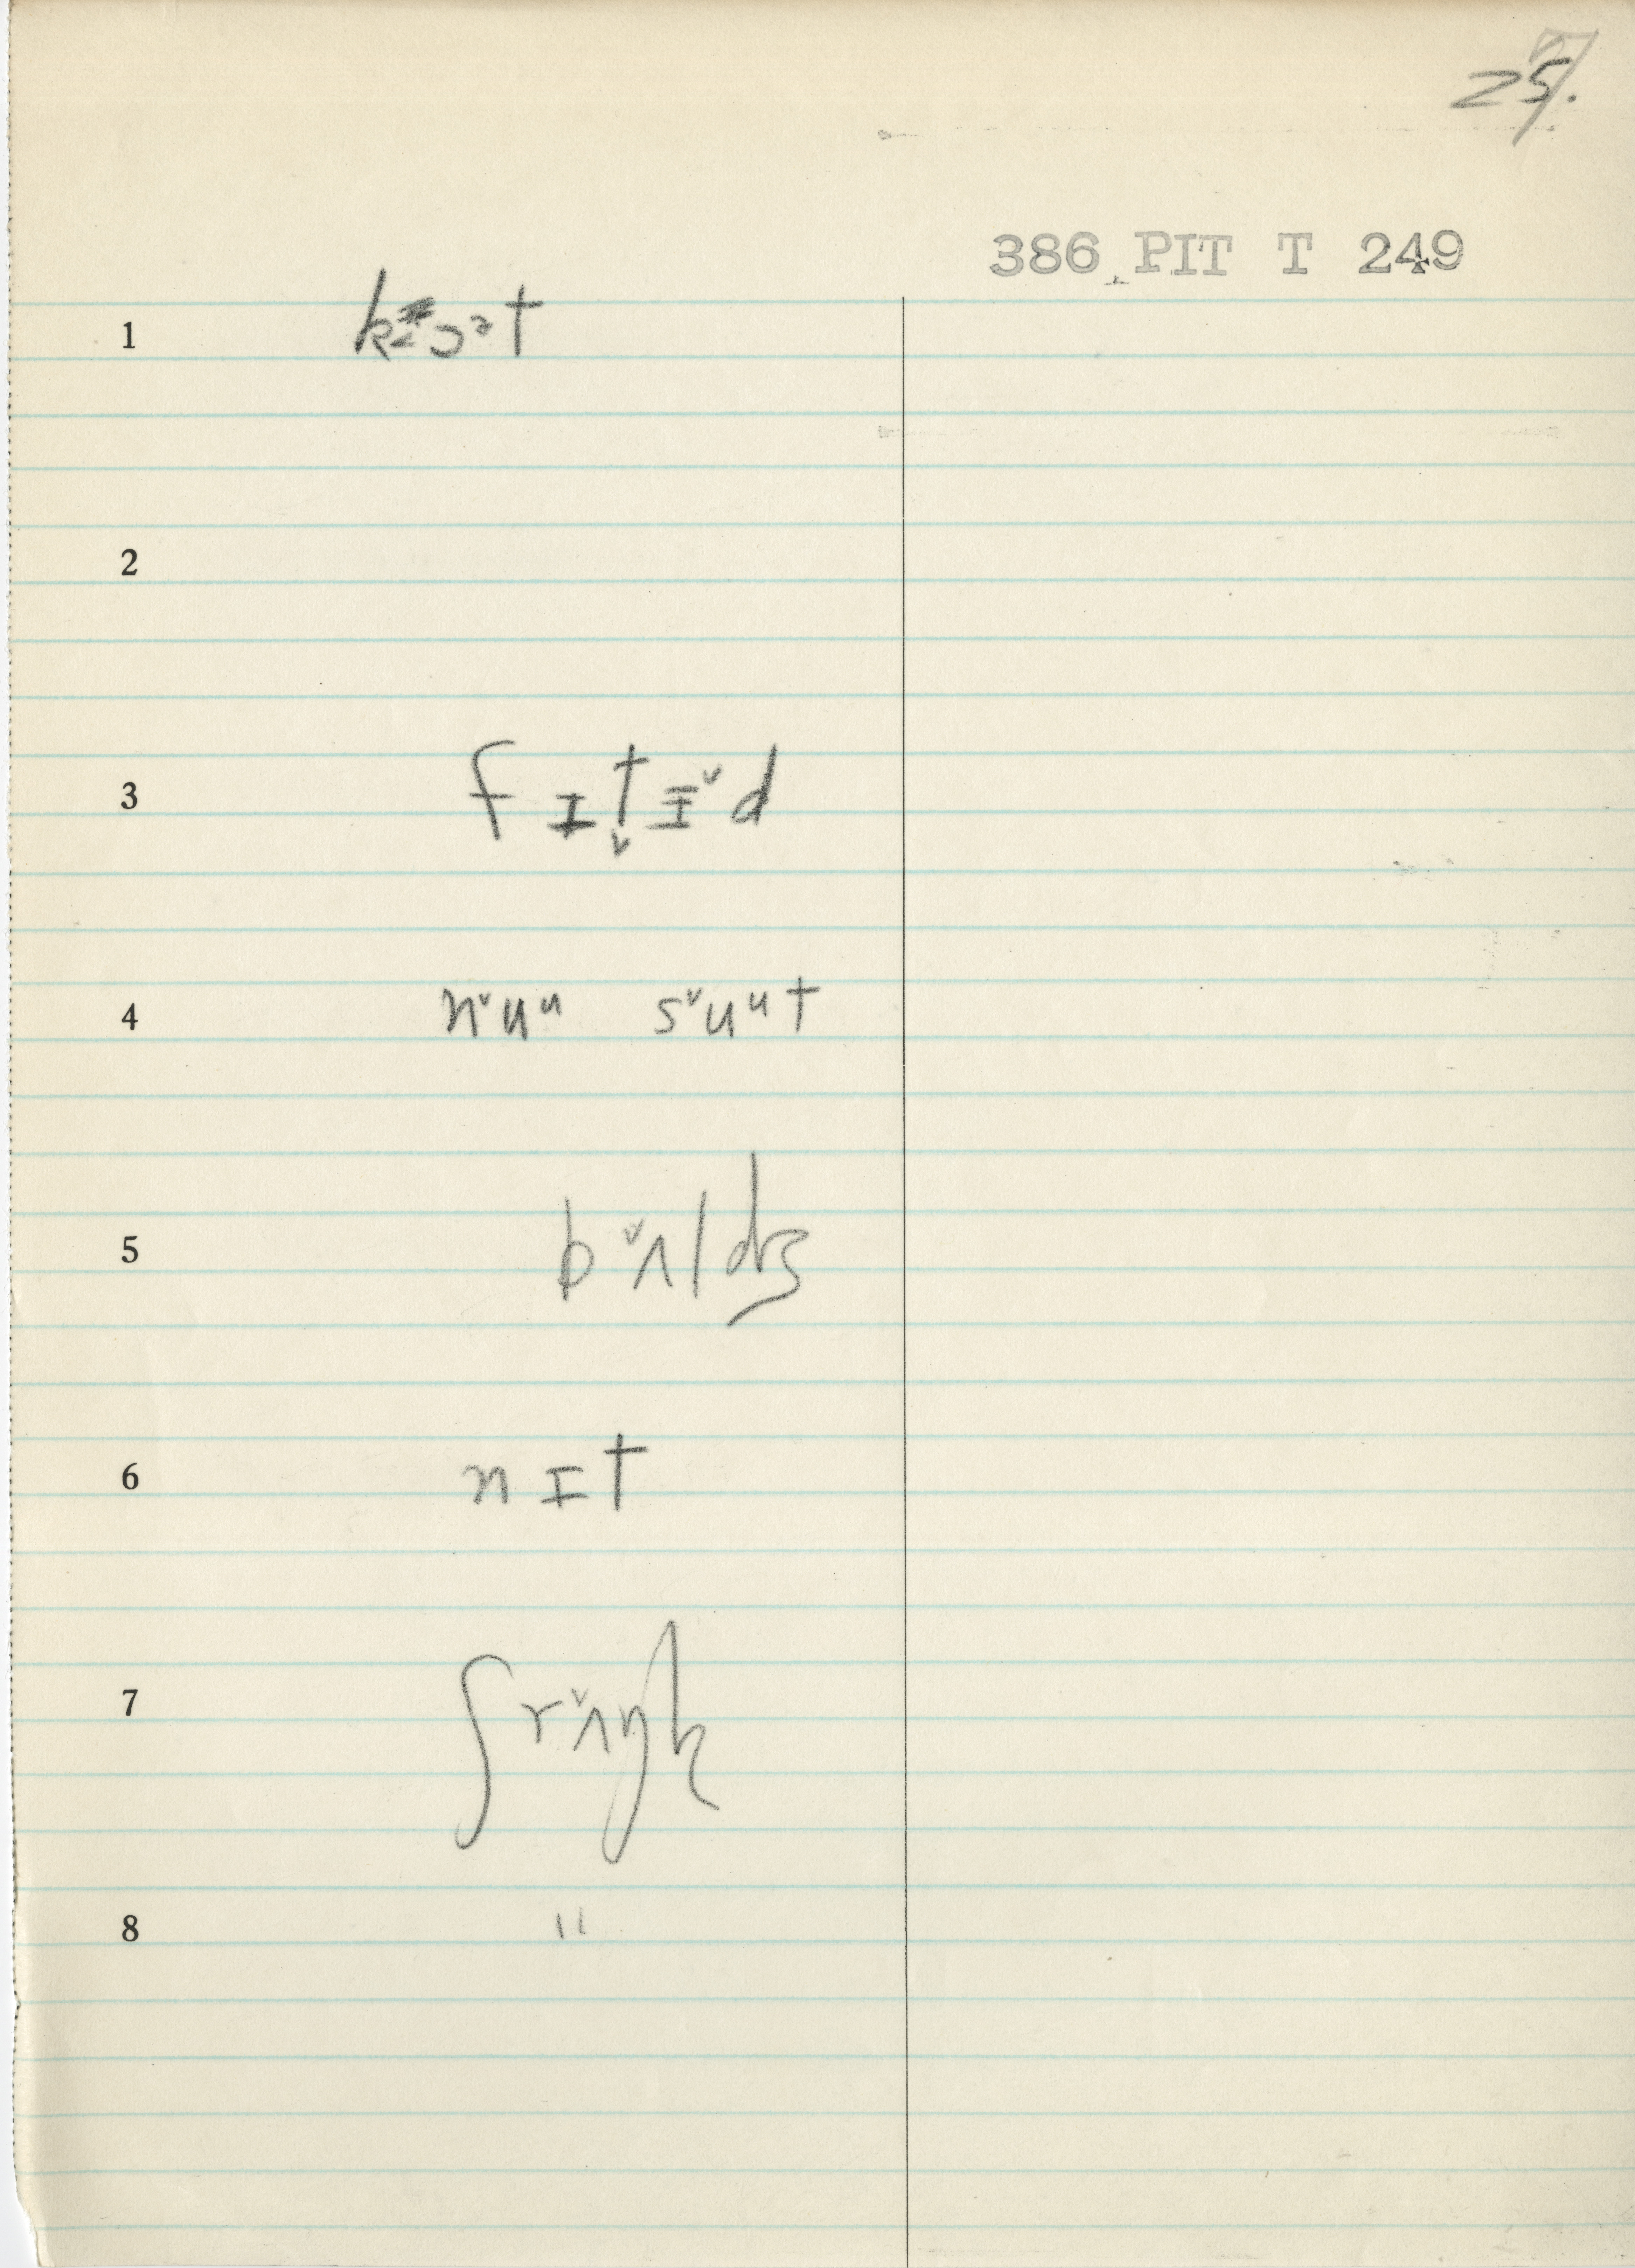 25.
386 PIT T 249
1 kɔᵊt
2
3 f ɪ t̬ ɪ̵ ˇd
4 nˇuᵘ sˇuᵘt
5 bˇʌldʒ
6 n ɪ t
7 ʃrˇʌŋk
8 "